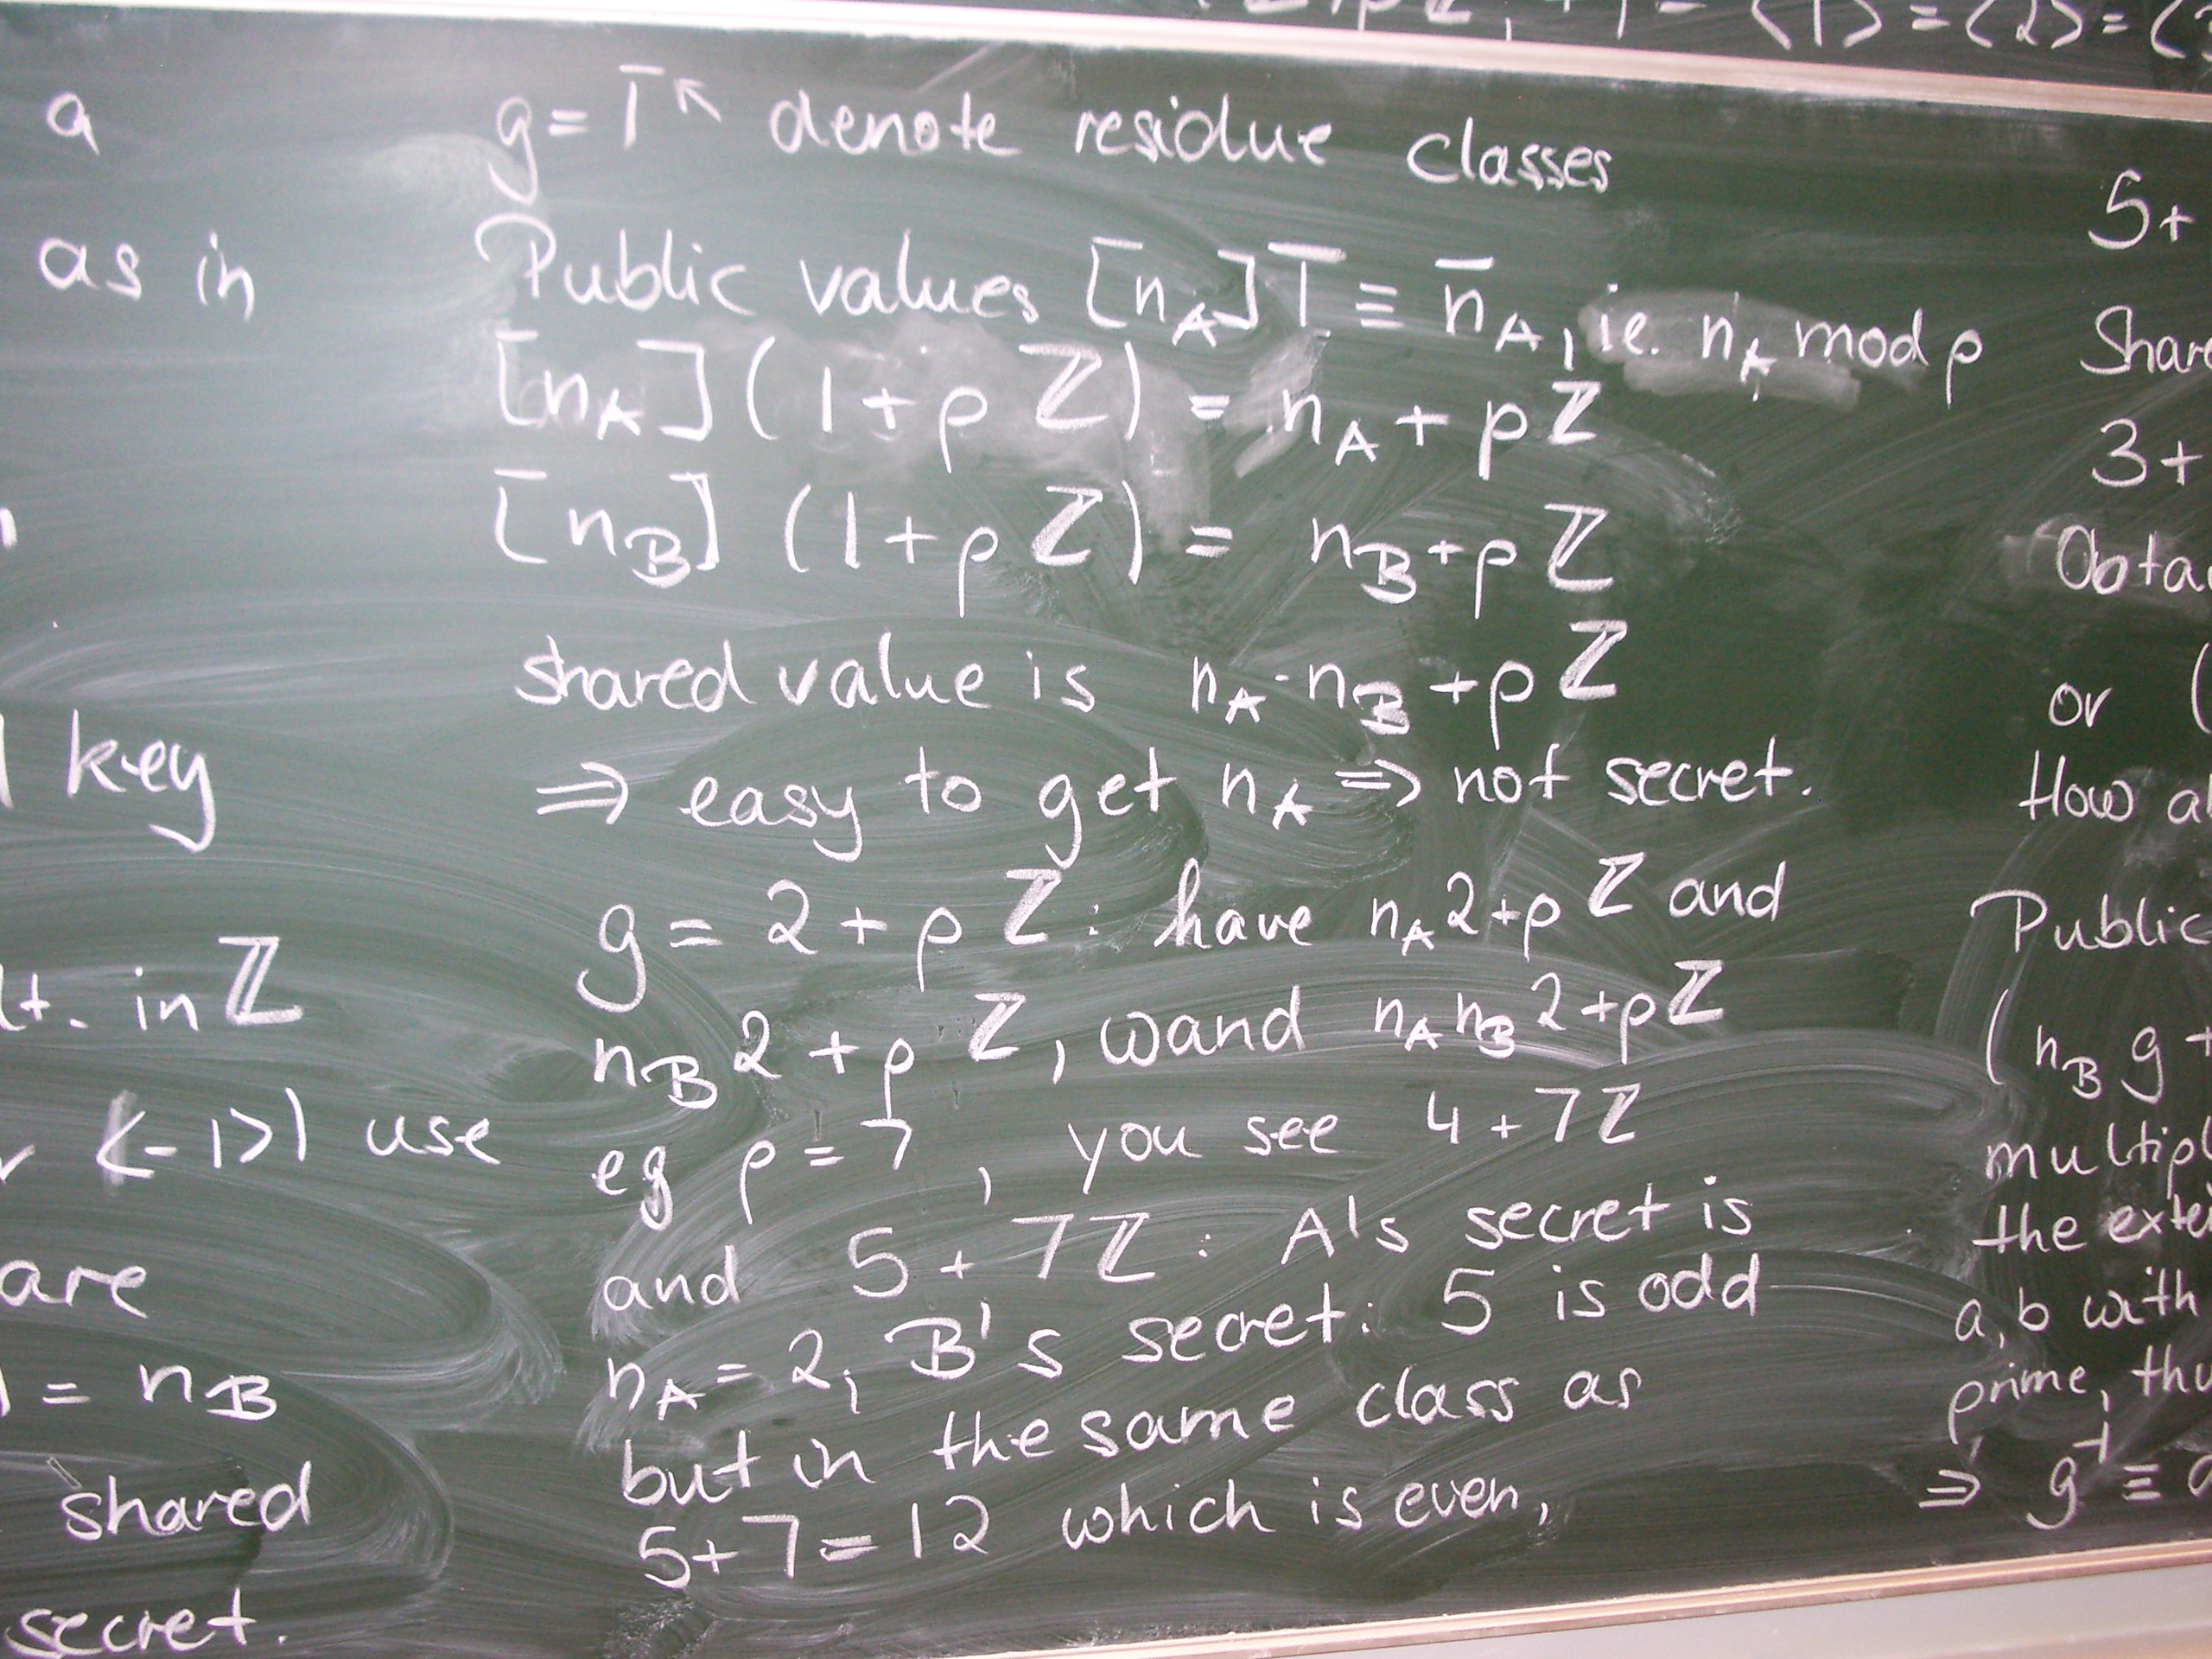 ⟨1⟩ = ⟨2⟩ = ⟨
a
as in
key
lt. in ℤ
⟨-1⟩) use
are
= n_B
shared
secret.
g = 1̄ ↖ denote residue classes
Public values [n̄_A] 1̄ ≡ n̄_A, ie. n_A mod p
[n_A] (1 + pℤ) = n_A + pℤ
[n_B] (1 + pℤ) = n_B + pℤ
shared value is n_A · n_B + pℤ
⇒ easy to get n_A ⇒ not secret.
g = 2 + pℤ : have n_A 2 + pℤ and
n_B 2 + pℤ, wand n_A n_B 2 + pℤ
eg p = 7, you see 4 + 7ℤ
and 5 + 7ℤ : A's secret is
n_A = 2; B's secret: 5 is odd
but in the same class as
5 + 7 = 12 which is even,
5 +
Share
3 +
Obta
or (
How a
Public
(n_B g +
multipl
the exte
a, b with
prime, thu
⇒ g⁻¹ ≡